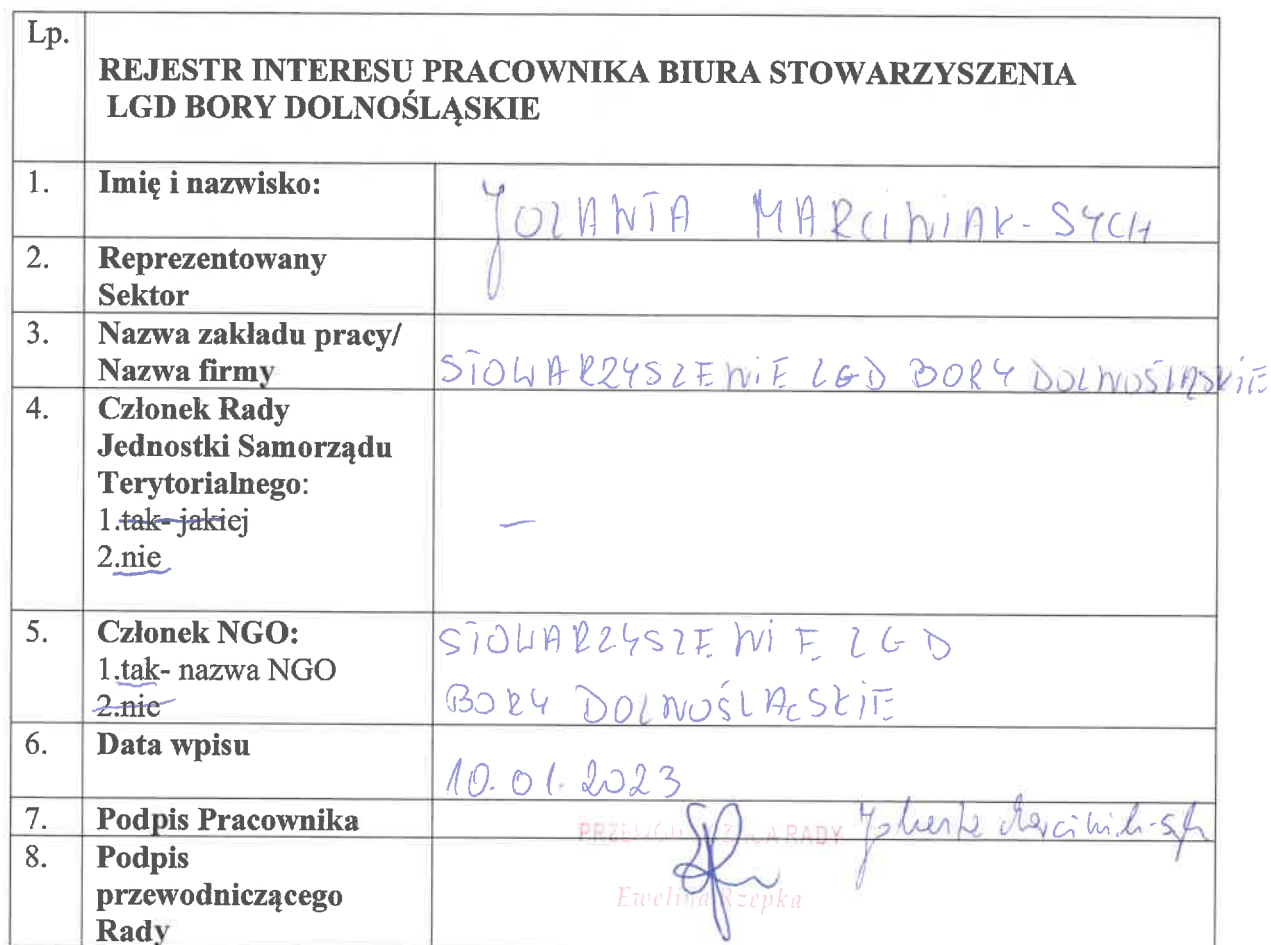 Lp.
REJESTR INTERESU PRACOWNIKA BIURA STOWARZYSZENIA
LGD BORY DOLNOŚLĄSKIE
1. Imię i nazwisko: JOLANTA MARCINIAK-SYCH
2. Reprezentowany
Sektor
3. Nazwa zakładu pracy/
Nazwa firmy STOWARZYSZENIE LGD BORY DOLNOŚLĄSKIE
4. Członek Rady
Jednostki Samorządu
Terytorialnego:
1.tak- jakiej –
2.nie
5. Członek NGO: STOWARZYSZENIE LGD
1.tak- nazwa NGO BORY DOLNOŚLĄSKIE
2.nie
6. Data wpisu 10.01.2023
7. Podpis Pracownika Jolanta Marciniak-Sych
8. Podpis
przewodniczącego
Rady
PRZEWODNICZĄCA RADY
Ewelina Rzepka